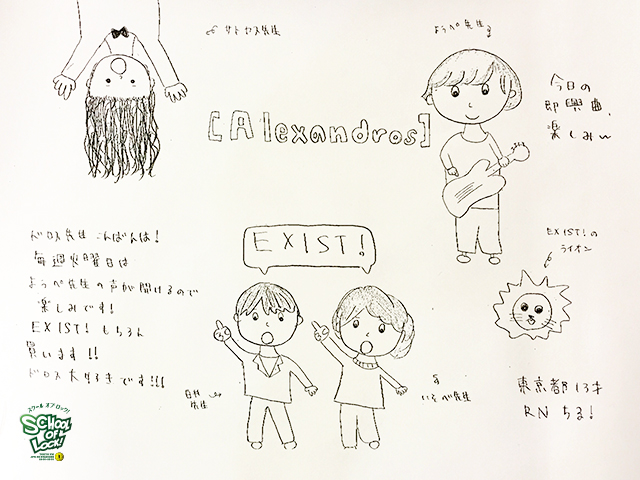 サトヤス先生
ようぺ先生
[Alexandros]
今日の
即興曲、
楽しみ〜
EXIST!
EXIST!の
ライオン
ドロス先生こんばんは!
毎週火曜日は
ようぺ先生の声が聞けるので
楽しみです!
EXIST! もちろん
買います!!
ドロス大好きです!!!
白井
先生
いそべ先生
東京都 13才
RN ちる!
スクール オブ ロック!
SCHOOL
OF
LOCK!